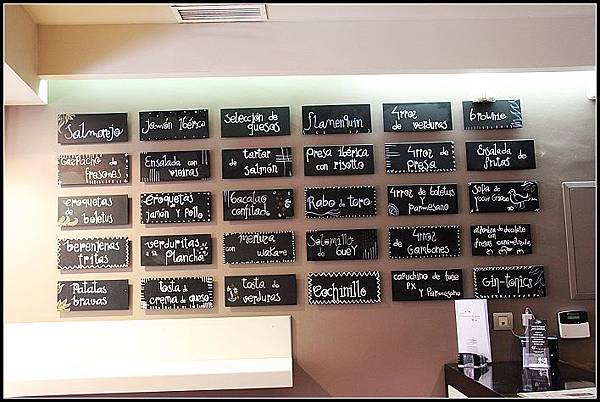 Salmorejo
Jamón Ibérico
selección de
quesos
flamenquin
Arroz
de verduras
brownie
Gazpacho de
fresones
Ensalada con
vieiras
de tartar
salmón
presa ibérica
con risotto
Arroz de
presa
Ensalada de
frutas
croquetas
de boletus
croquetas
jamón y pollo
Bacalao
confitado
Rabo de toro
Arroz de boletus y
parmesano
Sopa de
yogur griego
berenjenas
fritas
verduritas a
la plancha
merluza
con wakame
Solomillo
de buey
de Arroz
Gambones
de chocolate
con
frutas
Patatas
bravas
tosta de
crema de queso
tosta de
verduras
Cochinillo
capuchino de
PX
y Parmesano
Gin-tonics